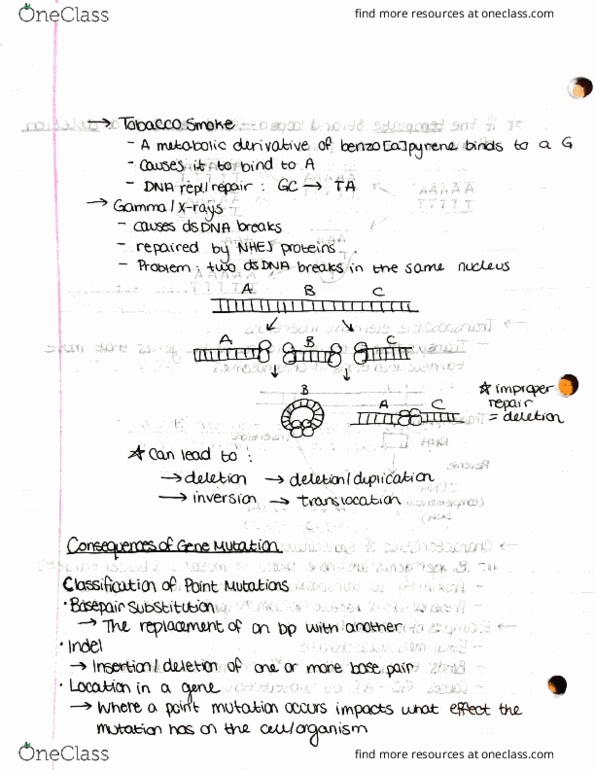 OneClass
find more resources at oneclass.com
→ Tobacco Smoke
- A metabolic derivative of benzo[a]pyrene binds to a G
- causes it to bind to A
- DNA repl/repair : GC → TA
→ Gamma/X-rays
- causes dsDNA breaks
- repaired by NHEJ proteins
- Problem : two dsDNA breaks in the same nucleus
A B C
A B C
B
A C
☆ improper
repair
= deletion
☆ Can lead to :
→ deletion → deletion/duplication
→ inversion → translocation
Consequences of Gene Mutation
Classification of Point Mutations
· Basepair Substitution
→ The replacement of on bp with another
· Indel
→ Insertion/deletion of one or more base pair
· Location in a gene
→ Where a point mutation occurs impacts what effect the
mutation has on the cell/organism
OneClass
find more resources at oneclass.com